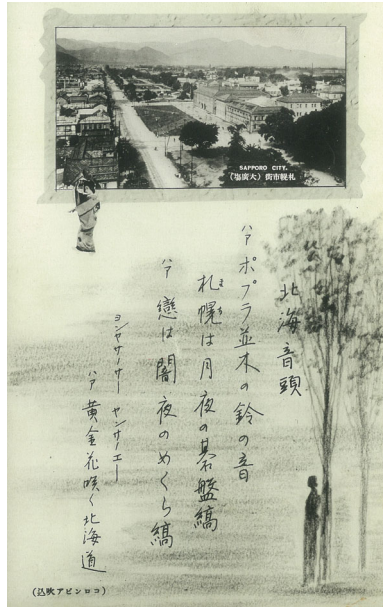 SAPPORO CITY.
札幌市街（大廣塲）
北海音頭
ハアポプラ並木の鈴の音
札幌は月夜の碁盤縞
ハア戀は闇夜のめくら縞
ヨンヤサーサー ヤンサーエー
ハア黄金花咲く北海道
（コロンビア吹込）